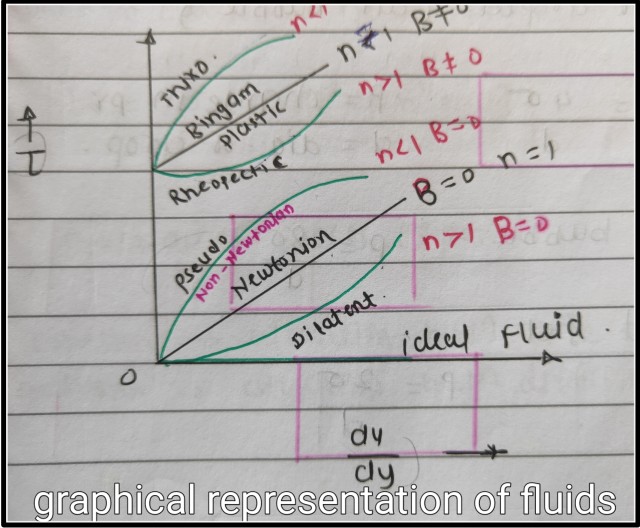 n<1
n≠1 B≠0
Thixo.
Bingam
plastic
n>1 B≠0
Rheopectic
τ
n<1 B=0
B=0 n=1
Pseudo
Non-Newtonian
Newtonion
n>1 B=0
Dilatent.
ideal fluid.
0
du
dy
graphical representation of fluids